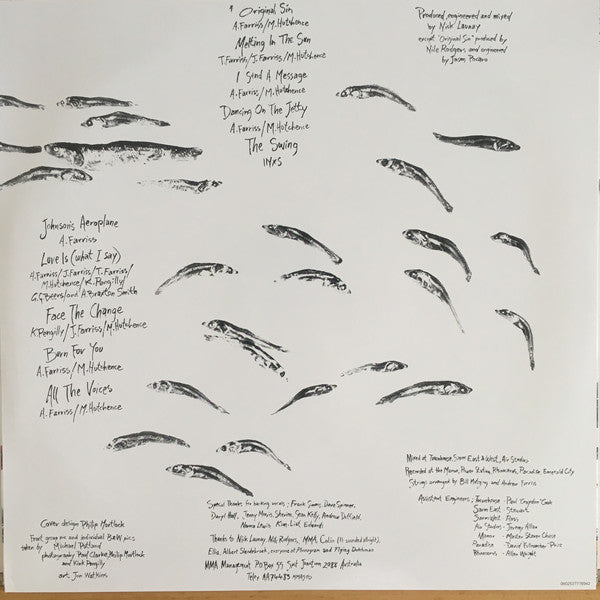 Original Sin
A.Farriss/M.Hutchence
Melting In The Sun
T.Farriss/J.Farriss/M.Hutchence
I Send A Message
A.Farriss/M.Hutchence
Dancing On The Jetty
A.Farriss/M.Hutchence
The Swing
INXS
Produced, engineered and mixed
by Nick Launay
except "Original Sin" produced by
Nile Rodgers, and engineered
by Jason
Johnson's Aeroplane
A.Farriss
Love Is (what I say)
A.Farriss/J.Farriss/T.Farriss/
M.Hutchence/K.Pengilly/
G.G.Beers/and A.Braxton Smith
Face The Change
K.Pengilly/J.Farriss/M.Hutchence
Burn For You
A.Farriss/M.Hutchence
All The Voices
A.Farriss/M.Hutchence
Mixed at Townhouse, Sarm East & West, Air Studios
Recorded at the Manor, Power Station, Rhinoceros, Paradise, Emerald City
Strings arranged by and Andrew Farriss
Assistant Engineers; Townhouse - Paul 'Croydon' Cook
Sarm East - Stewart
Sarm West -
Air Studios - Jeremy Allan
Manor - Steven Chase
Paradise - David
Rhinoceros - Allan Wright
Special Thanks for backing vocals - Dave Skinner,
Daryl Hall, Jenny Morris, Sherine, Sean Kelly, Andrew Duffield,
Edwards
Thanks to Nick Launay, Nile Rodgers, MMA, Colin
Ellie, Albert everyone at Phonogram and Flying Dutchman
MMA Management PO Box 55 Sat 2088 Australia
Telex AA74483
Cover design Philip Mortlock
Front group and individual B&W pics
taken by Michael Putland
photography Paul Clarke, Philip Mortlock
and Kirk Pengilly
art. Jim Watkins